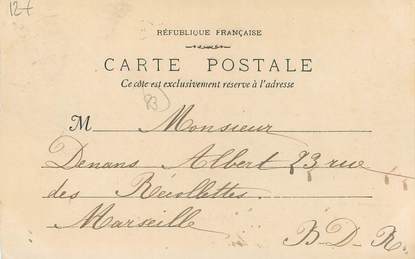 12+
RÉPUBLIQUE FRANÇAISE
CARTE POSTALE
Ce côté est exclusivement réservé à l'adresse
83
M Monsieur
Denans Albert 23 rue
des Récollettes
Marseille
B-D-R.